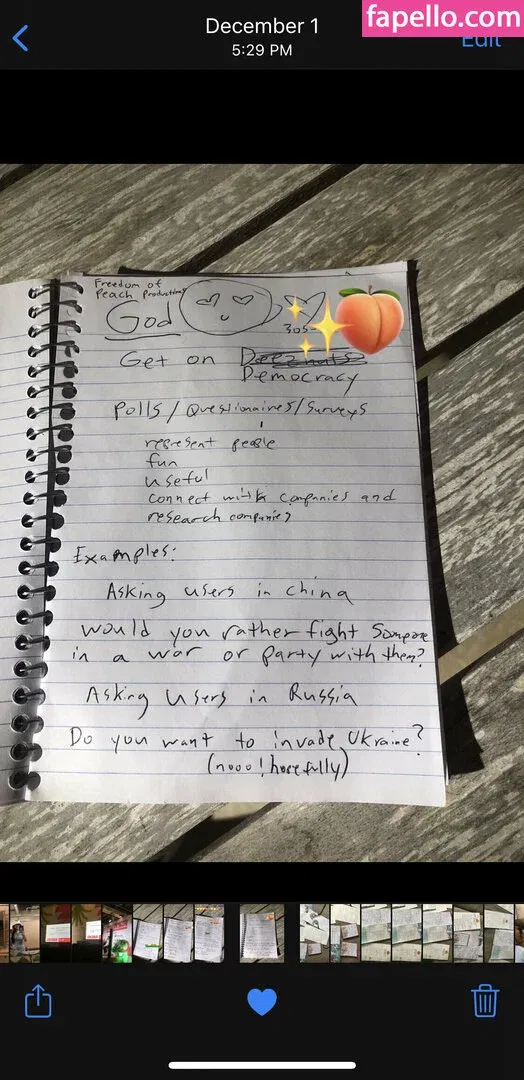 December 1
5:29 PM
fapello.com
Edit
Freedom of
Peach Productions
God
305
Get on Deeznuts
Democracy
Polls/Questionaires/Surveys
represent people
fun
useful
connect with companies and
research companies
Examples:
Asking users in china
would you rather fight someone
in a war or party with them?
Asking users in Russia
Do you want to invade Ukraine?
(nooo! hopefully)